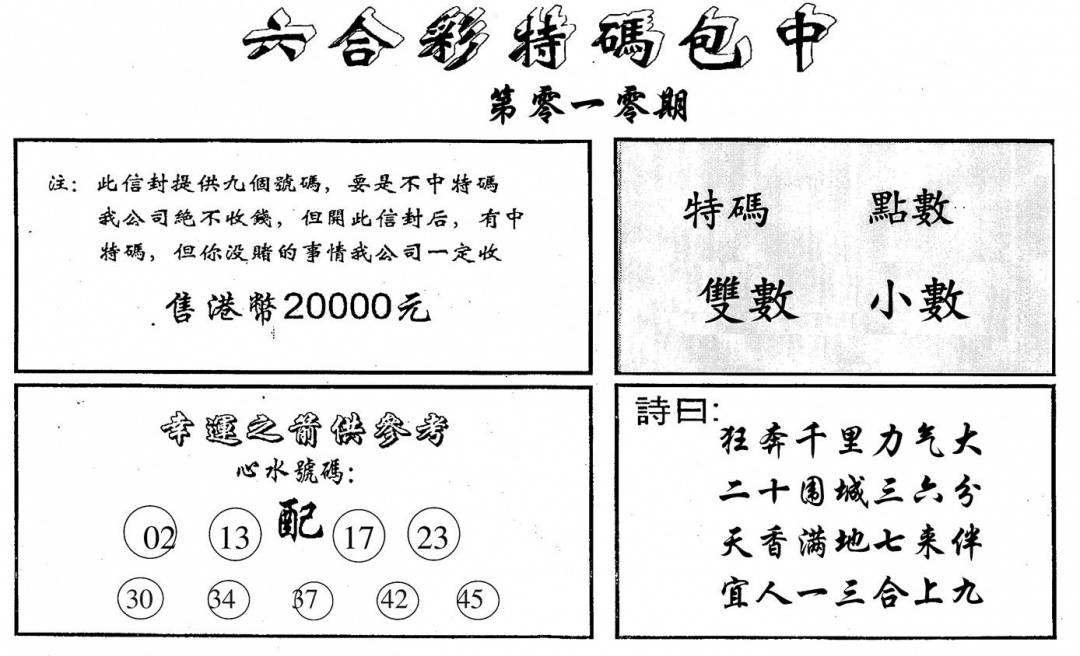 六合彩特碼包中
第零一零期
注：此信封提供九個號碼，要是不中特碼
我公司絕不收錢，但開此信封后，有中
特碼，但你没賭的事情我公司一定收
售港幣20000元
特碼 點數
雙數 小數
幸運之箭供參考
心水號碼：
02 13 配 17 23
30 34 37 42 45
詩曰：
狂奔千里力气大
二十围城三六分
天香满地七来伴
宜人一三合上九